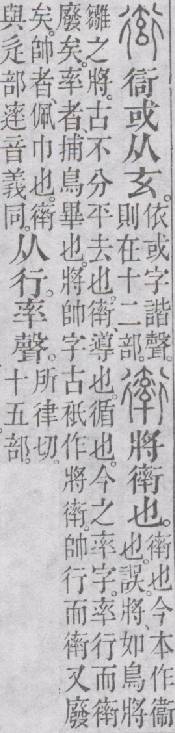 衒 䘕或从玄。依或字諧聲。則在十二部。𧗿 將𧗿也。𧗿也今本作衞也。誤。將、如鳥將
雛之將。古不分平去也。𧗿導也。循也。今之率字。率行而𧗿廢矣。率者捕鳥畢也。將帥字古衹作將𧗿。帥行而𧗿又廢
矣。帥者佩巾也。𧗿與辵部䢦音義同。从行。率聲。所律切。十五部。